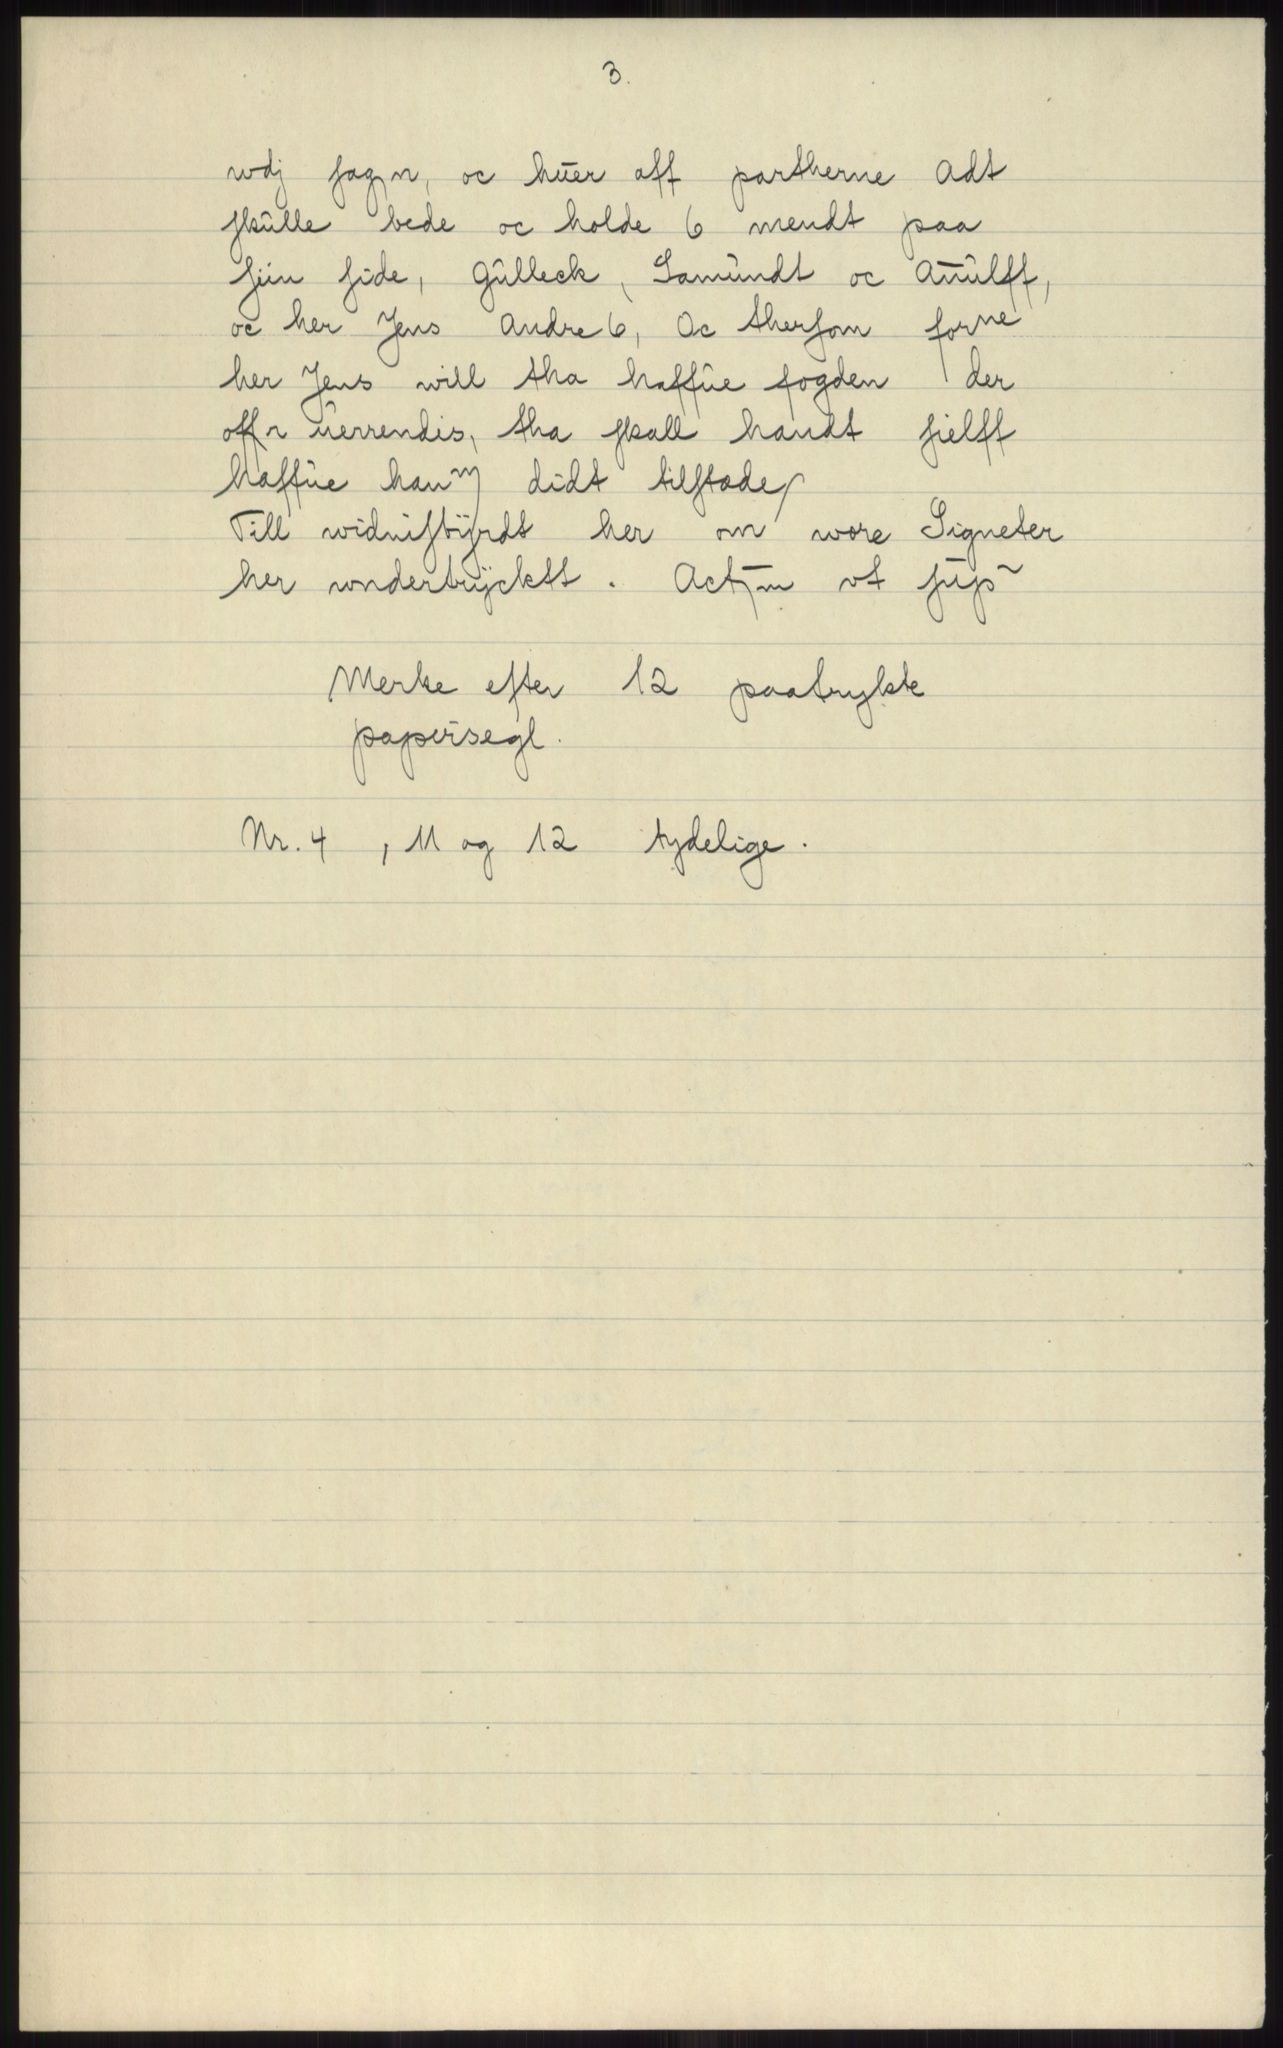 3.
wdj ſagn, oc huer aff partherne Adt
ſkulle bede oc holde 6 mendt paa
ſiin ſide, Gulleck, Samundt oc Auulff,
oc her Jens Andre 6, Oc therſom forne
her Jens will tha haffue fogden der
offr uerrendis, tha ſkall handt ſielff
haffue hanm didt tilſtade/
Till widniſbÿrdt her om wore Signeter
her wndertrÿcktt. Actm vt ſup
Merke efter 12 paatrykte
papirsegl.
Nr. 4, 11 og 12 tydelige.